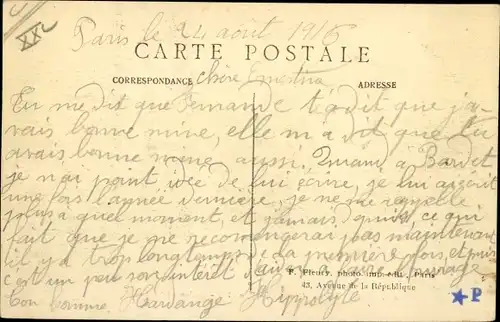 XX
Paris le 24 août 1915
CARTE POSTALE
CORRESPONDANCE
ADRESSE
chère Ernestna
Tu me dit que Fernande t'a dit que j'a-
vais bonne mine, elle m'a dit que tu
avais bonne mine aussi. Quand à Bardet
je n'ai point idée de lui écrire, je lui ai écrit
une fois l'année dernière, je ne me rappelle
plus a quel moment, et jamais depuis ce qui
fait que je ne recomencerai pas maintenant
il y a trop longtemps de la première fois, et puis
c'est un peu son interêt
bon comme Hardange Hippolyte
P. Fleury, photo. imp. édit., Paris
43, Avenue de la République
P